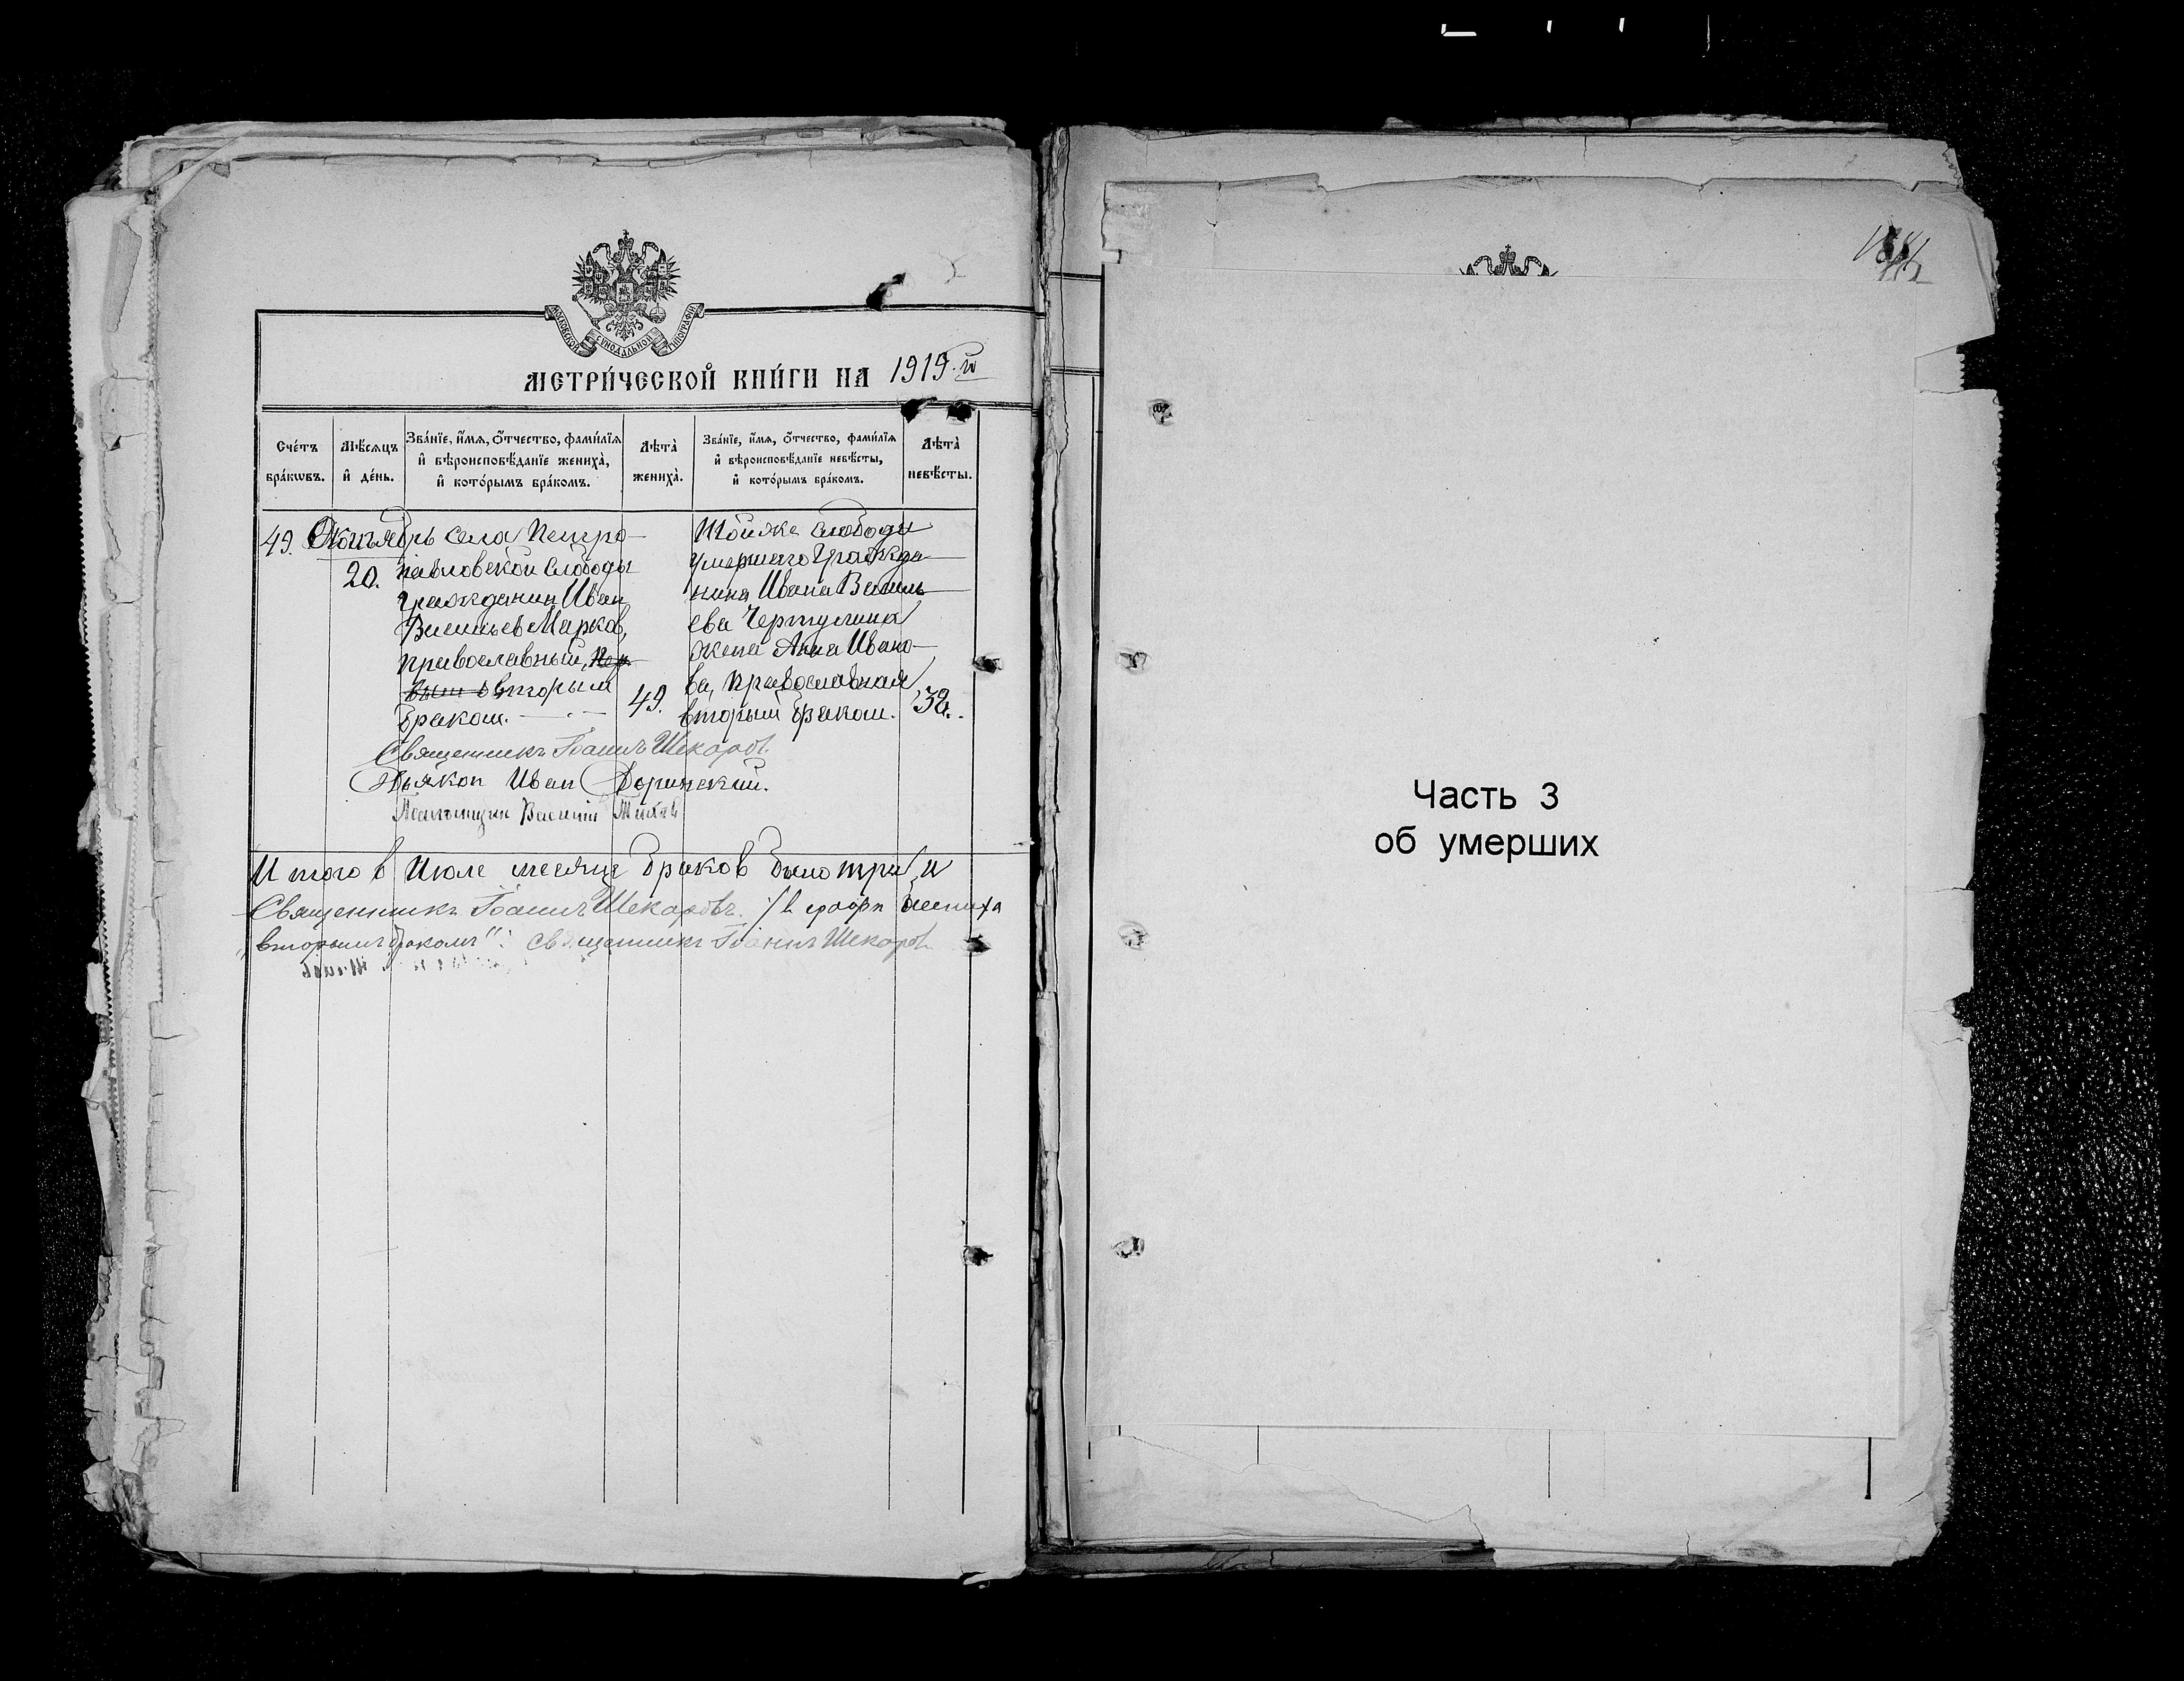 МОСКОВСКОЙ СѴНОДАЛЬНОЙ ТИПОГРАФІИ
МЕТРИ́ЧЕСКОЙ КНИ́ГИ НА 1919-й
Сче́тъ бра́кѡвъ.
Мѣ́сѧцъ и҆ де́нь.
Зва́нїе, и҆́мѧ, ѻ҆́тчество, фамѝлїѧ
и҆ вѣроисповѣ́данїе жениха̀,
и҆ кото́рымъ бра́комъ.
Лѣта̀ жениха̀.
Зва́нїе, и҆́мѧ, ѻ҆́тчество, фамѝлїѧ
и҆ вѣроисповѣ́данїе невѣ́сты,
и҆ кото́рымъ бра́комъ.
Лѣта̀ невѣ́сты.
49. Октябрь
20.
села Петро-
павловской Слободы
гражданин Иван
Васильев Марков,
православный, пер-
вым вторым
браком.
49.
Тойже Слободы
умершего Гражда-
нина Ивана Василь-
ева
жена Анна Ивано-
ва, православная
вторым браком.
38.
Священникъ Іоаннъ Шекаровъ
Дьякон Иван
Псаломщик Василий
Итого в Июле месяце браков было три, и
Священникъ Іоаннъ Шекаровъ. в графѣ жениха
„вторымъ бракомъ": священникъ Іоаннъ Шекаровъ
Часть 3
об умерших